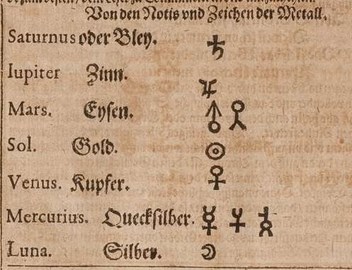 Von den Notis vnd Zeichen der Metall.
Saturnus oder Bley. ♄
Iupiter Zinn. ♃
Mars. Eysen. ♂
Sol. Gold. ☉
Venus. Kupfer. ♀
Mercurius. Quecksilber. ☿
Luna. Silber. ☽